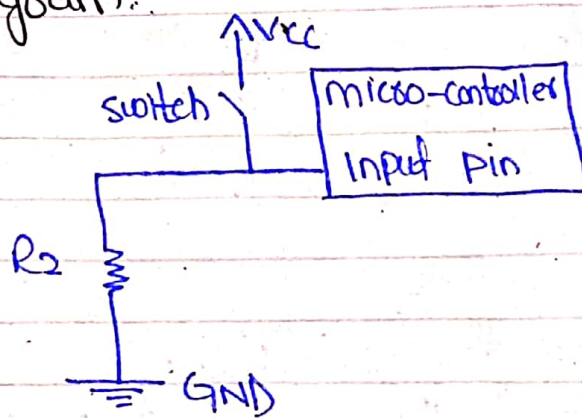 Vcc
switch
micro-controller
Input pin
R2
GND